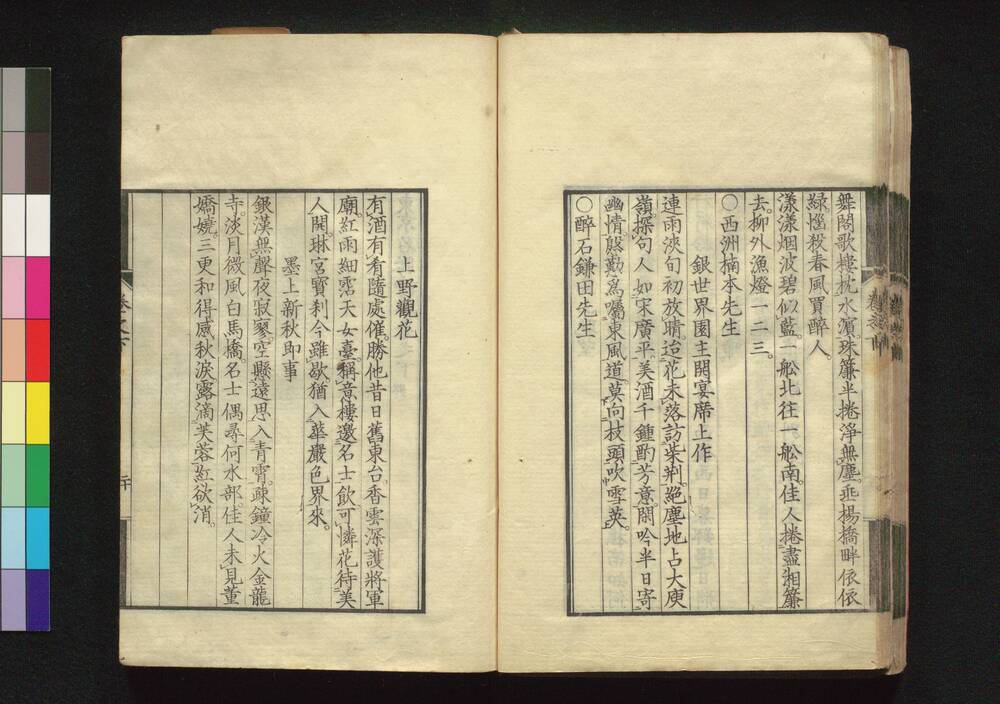 舞閣歌樓枕水濵珠簾半捲淨無塵垂楊橋畔依依
綠惱殺春風買醉人
漾漾烟波碧似藍一舩北往一舩南佳人捲盡湘簾
去柳外漁燈一二三
○西洲楠本先生
銀世界園主開宴席上作
連雨浹旬初放晴迨花未落訪柴荆絕塵地占大庾
嶺探句人如宋廣平美酒千鍾酌芳意閑吟半日寄
幽情慇懃爲囑東風道莫向枝頭吹雪英
○醉石鎌田先生
上野觀花
有酒有肴隨處催勝他昔日舊東台香雲深護將軍
廟紅雨細霑天女臺稱意樓邊名士飲可憐花待美
人開琳宮寶刹今雖歇猶入華嚴色界來
墨上新秋即事
銀漢無聲夜寂寥空懸遠思入青霄疎鐘冷火金龍
寺淡月微風白馬橋名士偶尋何水部佳人未見董
嬌嬈三更和得感秋淚露滴芙蓉紅欲消